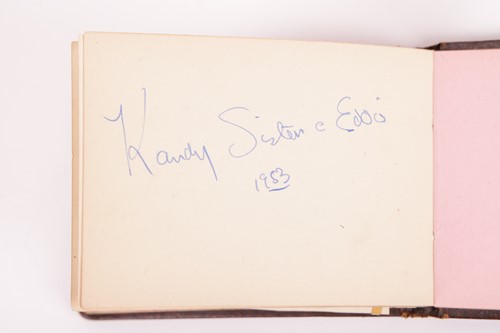 Kandy Sisters & Eddi
1953